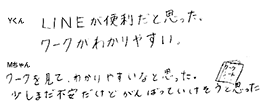 Yくん
LINEが便利だと思った。
ワークがわかりやすい。
Mちゃん
ワークを見て、わかりやすいなと思った。
少しまだ不安だけどがんばっていけそうと思った。
ワーク
ノート